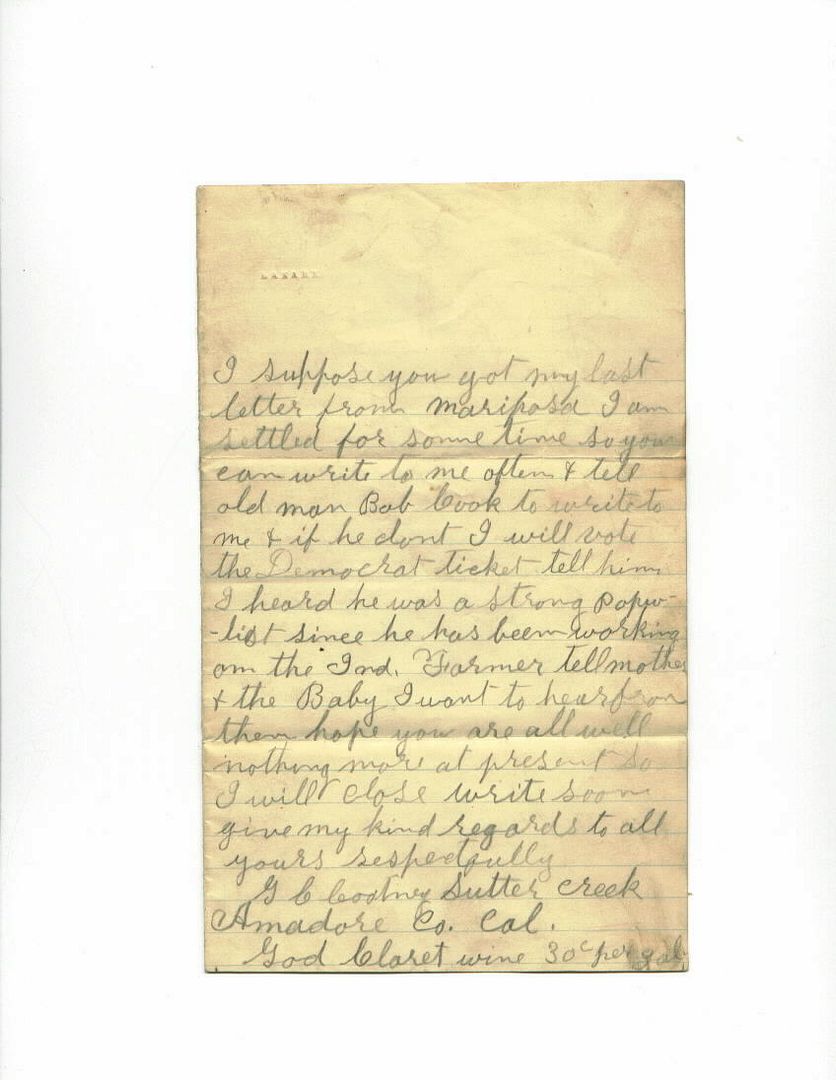 I suppose you got my last
letter from mariposa I am
settled for some time so you
can write to me often & tell
old man Bob Cook to write to
me & if he dont I will vote
the Democrat ticket tell him
I heard he was a strong popu-
-list since he has been working
on the Ind. Farmer tell mother
& the Baby I want to hear from
them hope you are all well
nothing more at present so
I will close write soon
give my kind regards to all
yours respectfully
G C Sutter Creek
Amadore Co. Cal.
God Claret wine 30c per gal